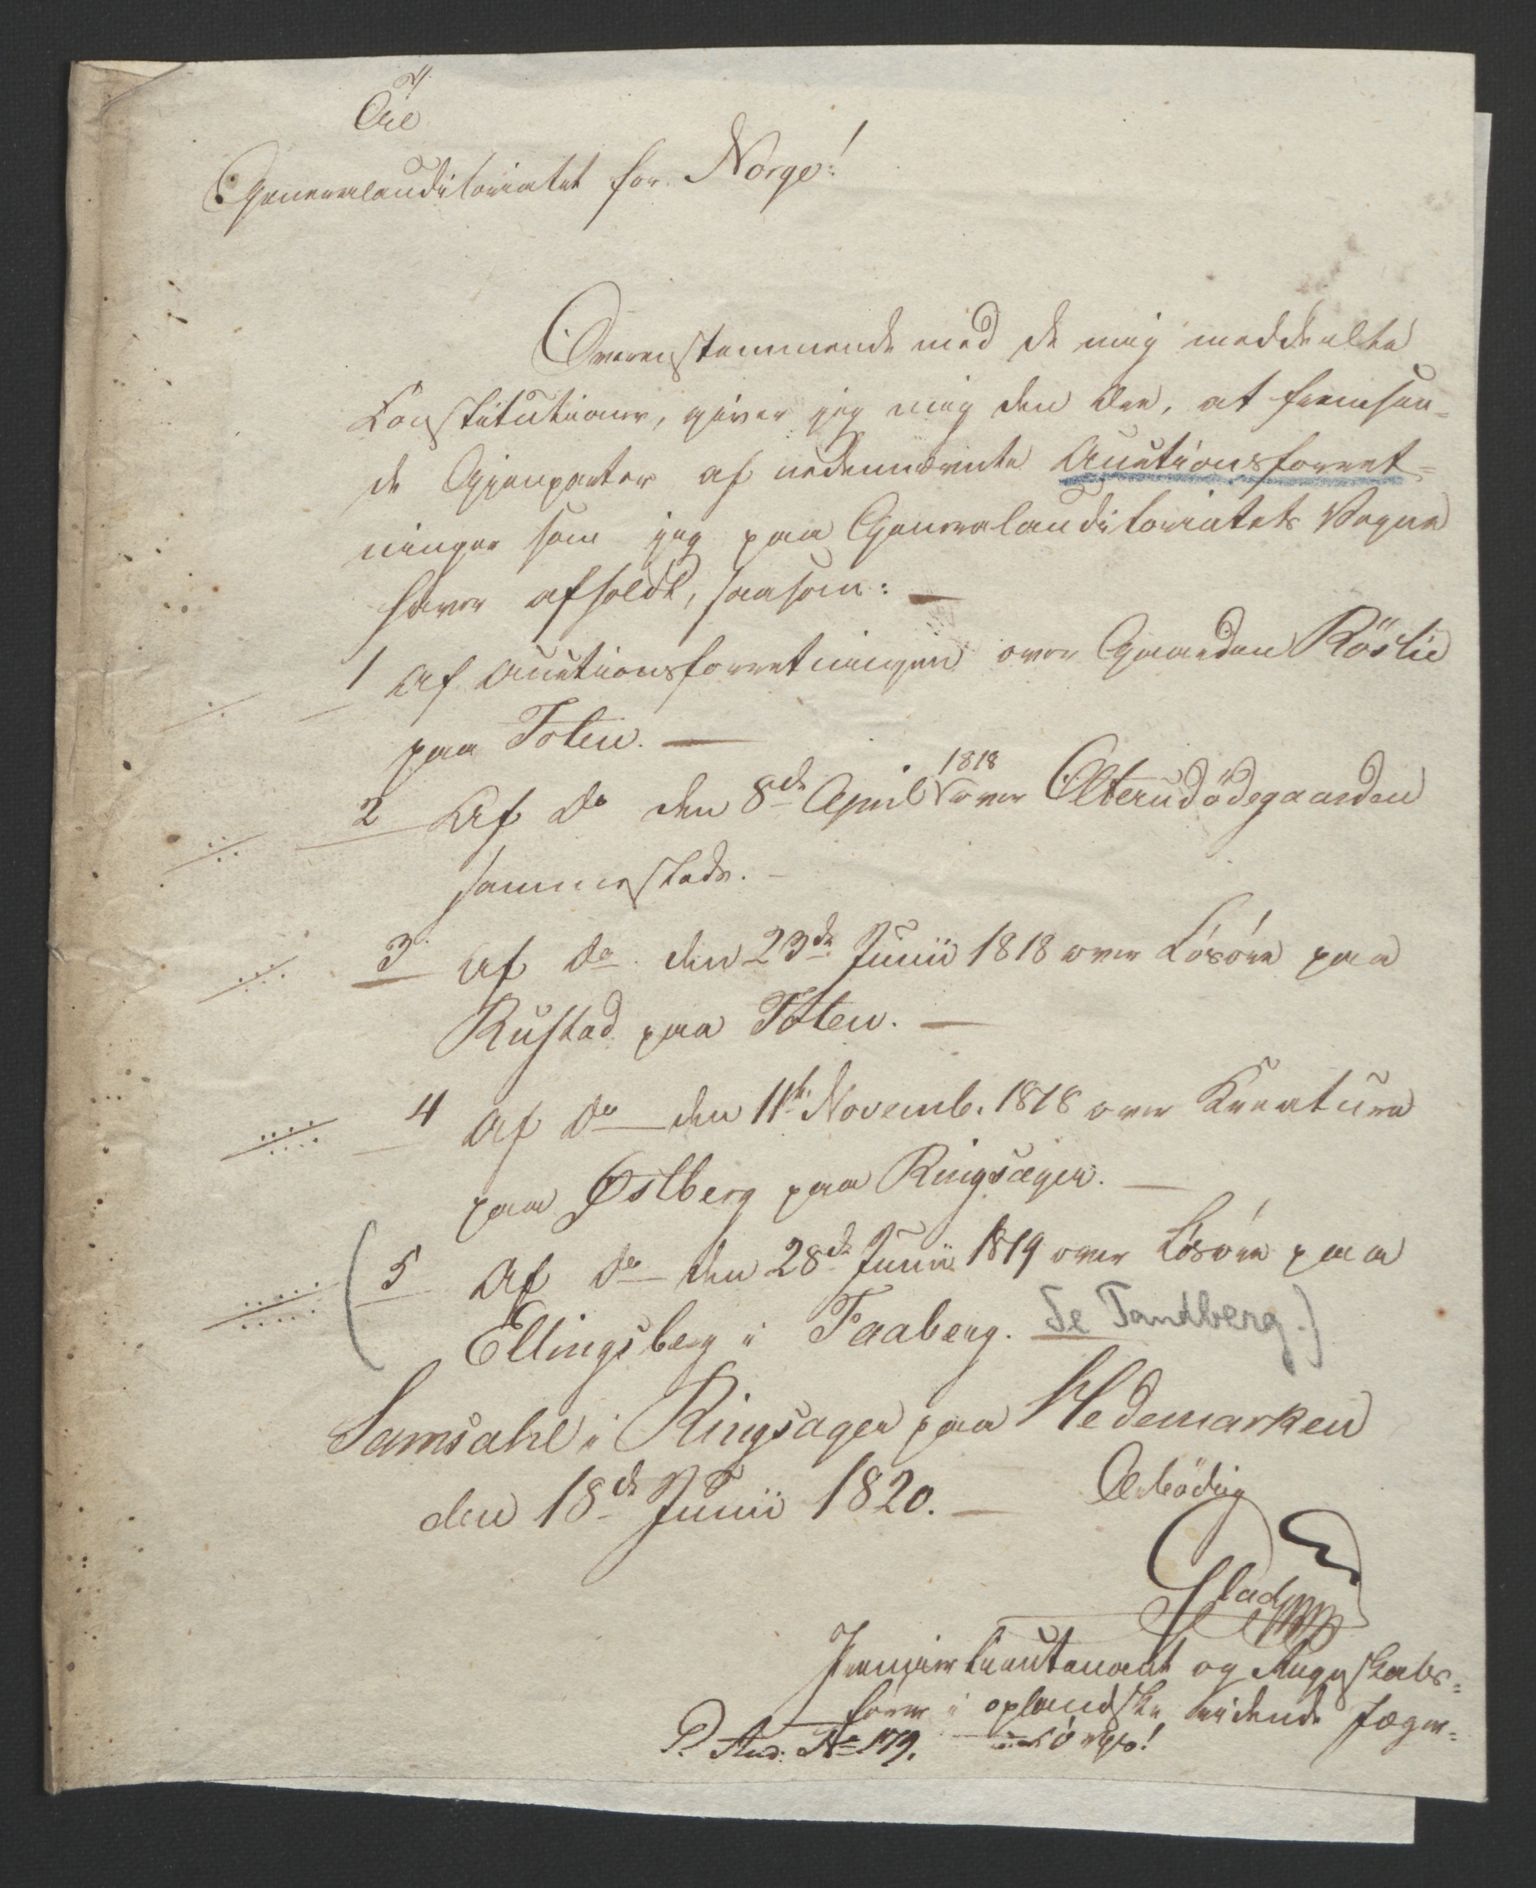 Til
Generalauditoriatet for Norge!
Overensstemmende med de mig meddeelte
Constitutioner, giver jeg mig den Ære, at fremsen-
de Gjenparter af nedennævnte Auctionsforret-
ninger som jeg paa Generalauditoriatets Vegne
haver afholdt, saasom:
1 Af Auctionsforretningen over Gaarden Röslie
paa Toten.
2 Af do den 8de April 1818 over Olterudödegaarden
sammesteds.
3 Af do den 23de Junii 1818 over Lösöre paa
Rustad paa Toten.
4 Af do den 11te Novemb. 1818 over Kreature
paa Østberg paa Ringsager.
(5 Af do den 28de Junii 1819 over Lösöre paa
Ellingsberg i Faaberg. Se Tandberg.)
Samsahl i Ringsager paa Hedemarken
den 18de Junii 1820.
Ærbödig
Glad
Premierlieutenant og Regnskabs-
förer i oplandske ridende Jæger-
corps!
P. Aud: No 179.